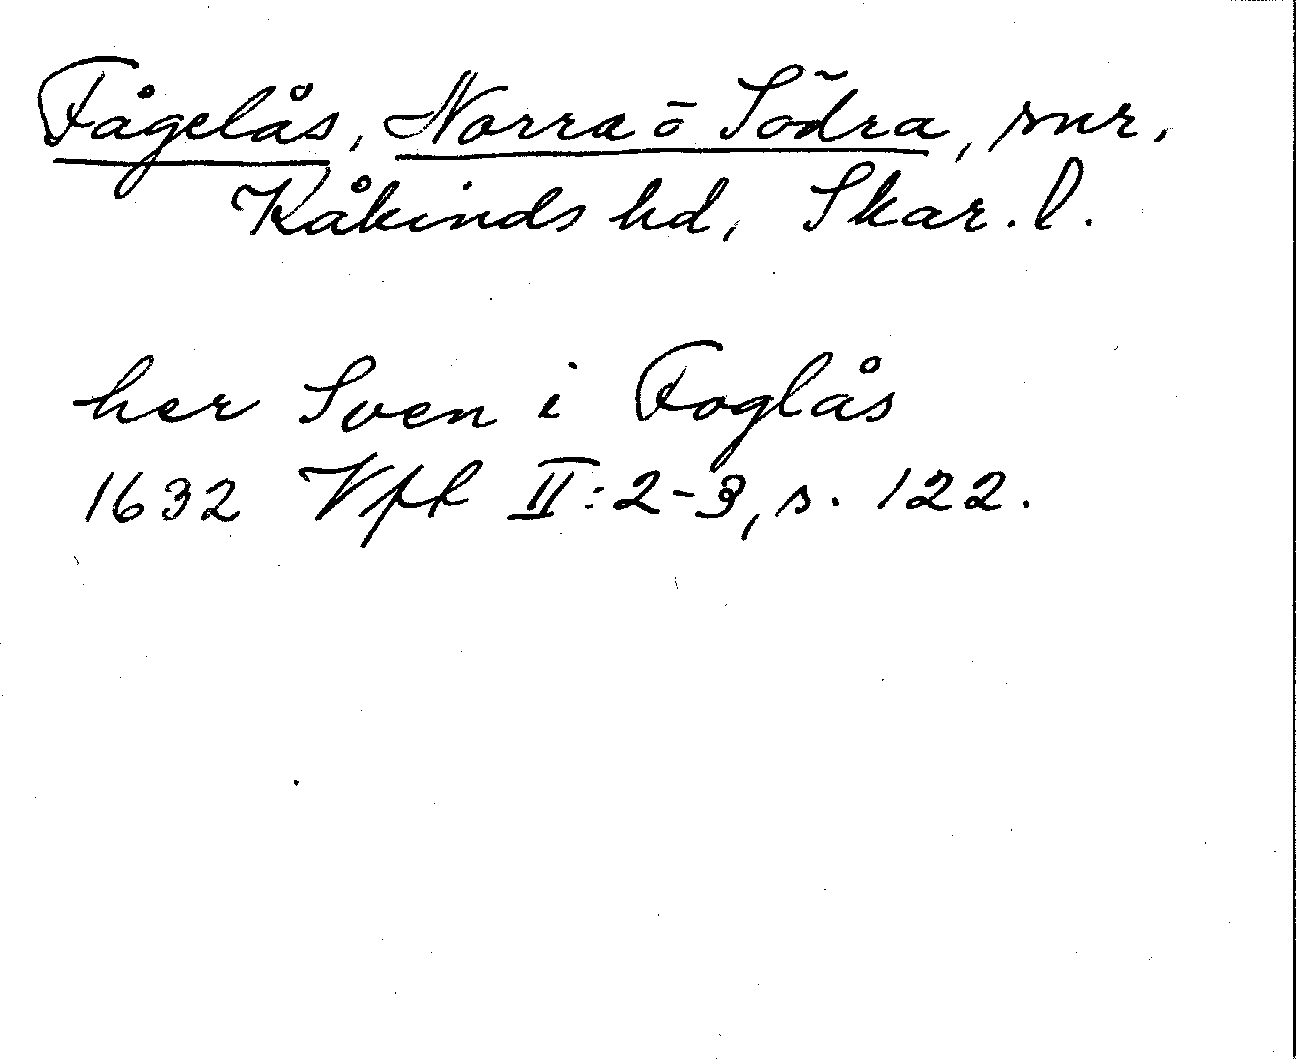 Fågelås, Norra o Södra, snr,
Kåkinds hd, Skar. l.
her Sven i Foglås
1632 Vfl II:2-3, s. 122.